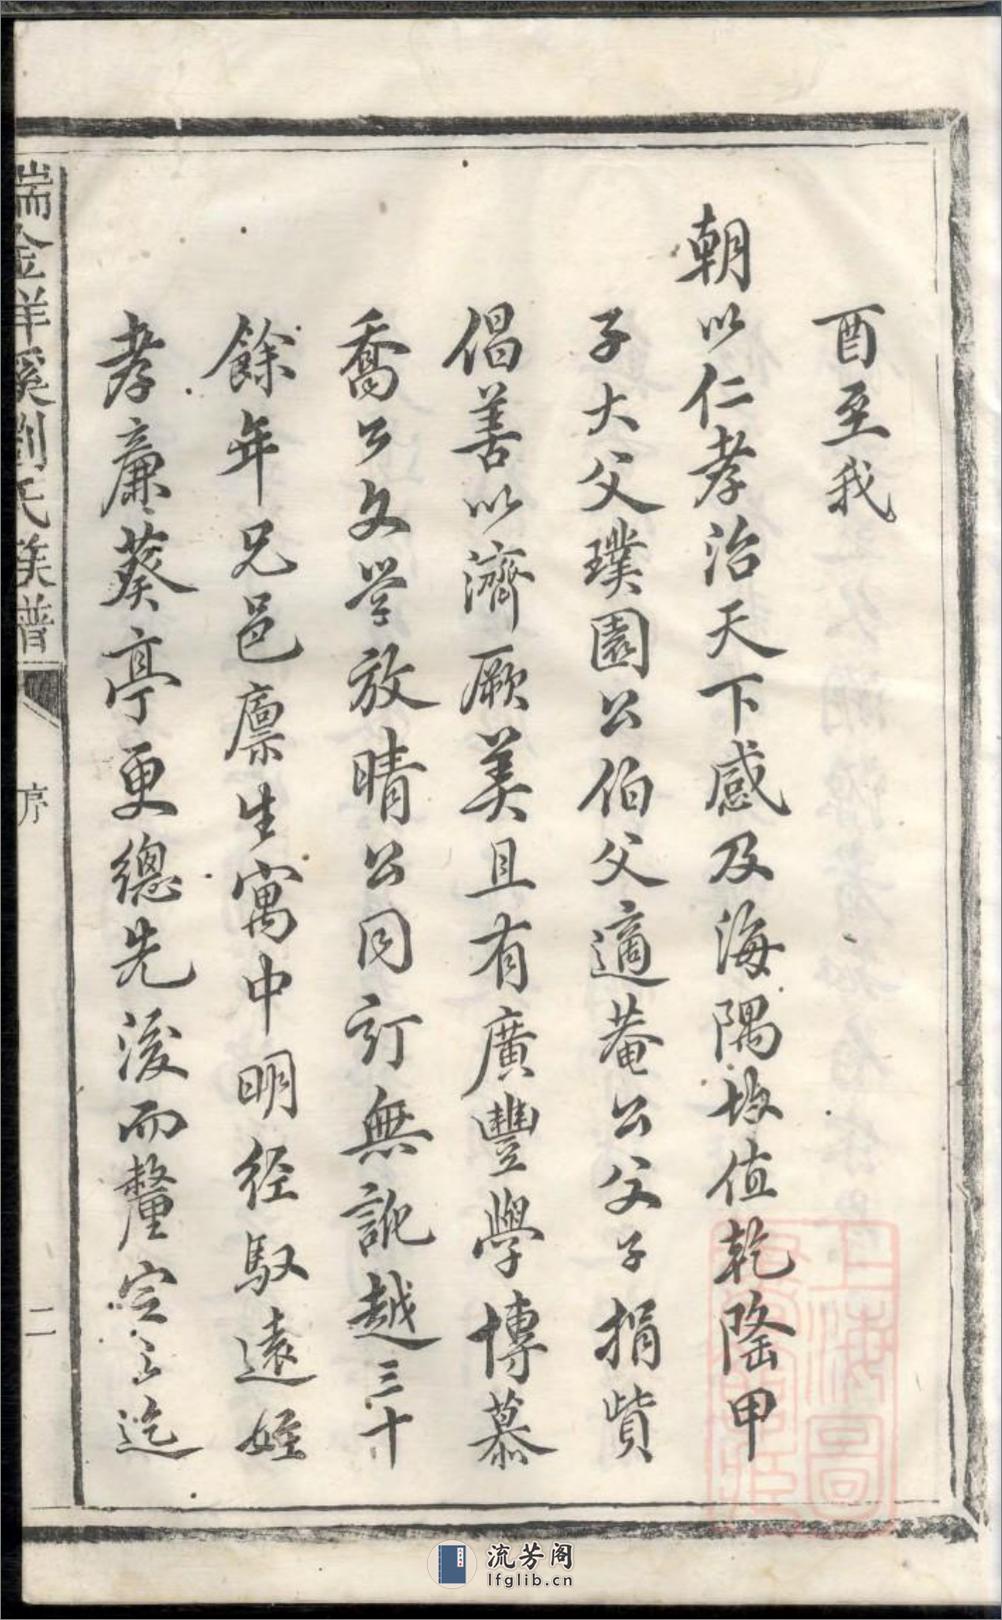 酉至我
朝以仁孝治天下感及海隅故值乾隆甲
子大父璞園公伯父適菴公父子捐貲
倡善以濟厥美且有廣豐學博慕
喬公文學放晴公同訂無訛越三十
餘年兄邑廩生寓中明経馭遠姪
孝廉葵亭更總先後而釐定之迄
瑞金洋溪劉氏族譜
序
二
上海圖
流芳阁
lfglib.cn